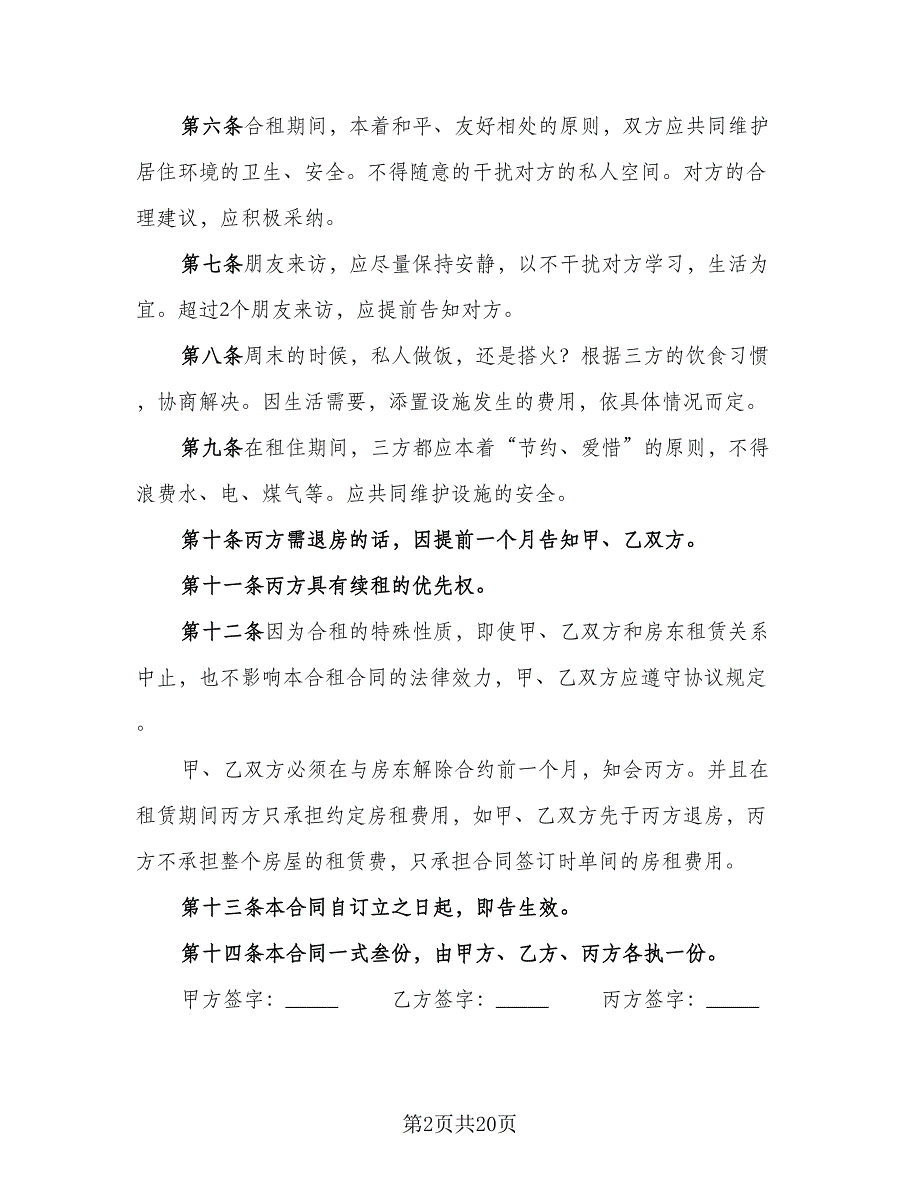 第六条合租期间，本着和平、友好相处的原则，双方应共同维护
居住环境的卫生、安全。不得随意的干扰对方的私人空间。对方的合
理建议，应积极采纳。
第七条朋友来访，应尽量保持安静，以不干扰对方学习，生活为
宜。超过2个朋友来访，应提前告知对方。
第八条周末的时候，私人做饭，还是搭火？根据三方的饮食习惯
，协商解决。因生活需要，添置设施发生的费用，依具体情况而定。
第九条在租住期间，三方都应本着“节约、爱惜”的原则，不得
浪费水、电、煤气等。应共同维护设施的安全。
第十条丙方需退房的话，因提前一个月告知甲、乙双方。
第十一条丙方具有续租的优先权。
第十二条因为合租的特殊性质，即使甲、乙双方和房东租赁关系
中止，也不影响本合租合同的法律效力，甲、乙双方应遵守协议规定
。
甲、乙双方必须在与房东解除合约前一个月，知会丙方。并且在
租赁期间丙方只承担约定房租费用，如甲、乙双方先于丙方退房，丙
方不承担整个房屋的租赁费，只承担合同签订时单间的房租费用。
第十三条本合同自订立之日起，即告生效。
第十四条本合同一式叁份，由甲方、乙方、丙方各执一份。
甲方签字：_____ 乙方签字：_____ 丙方签字：_____
第2页共20页